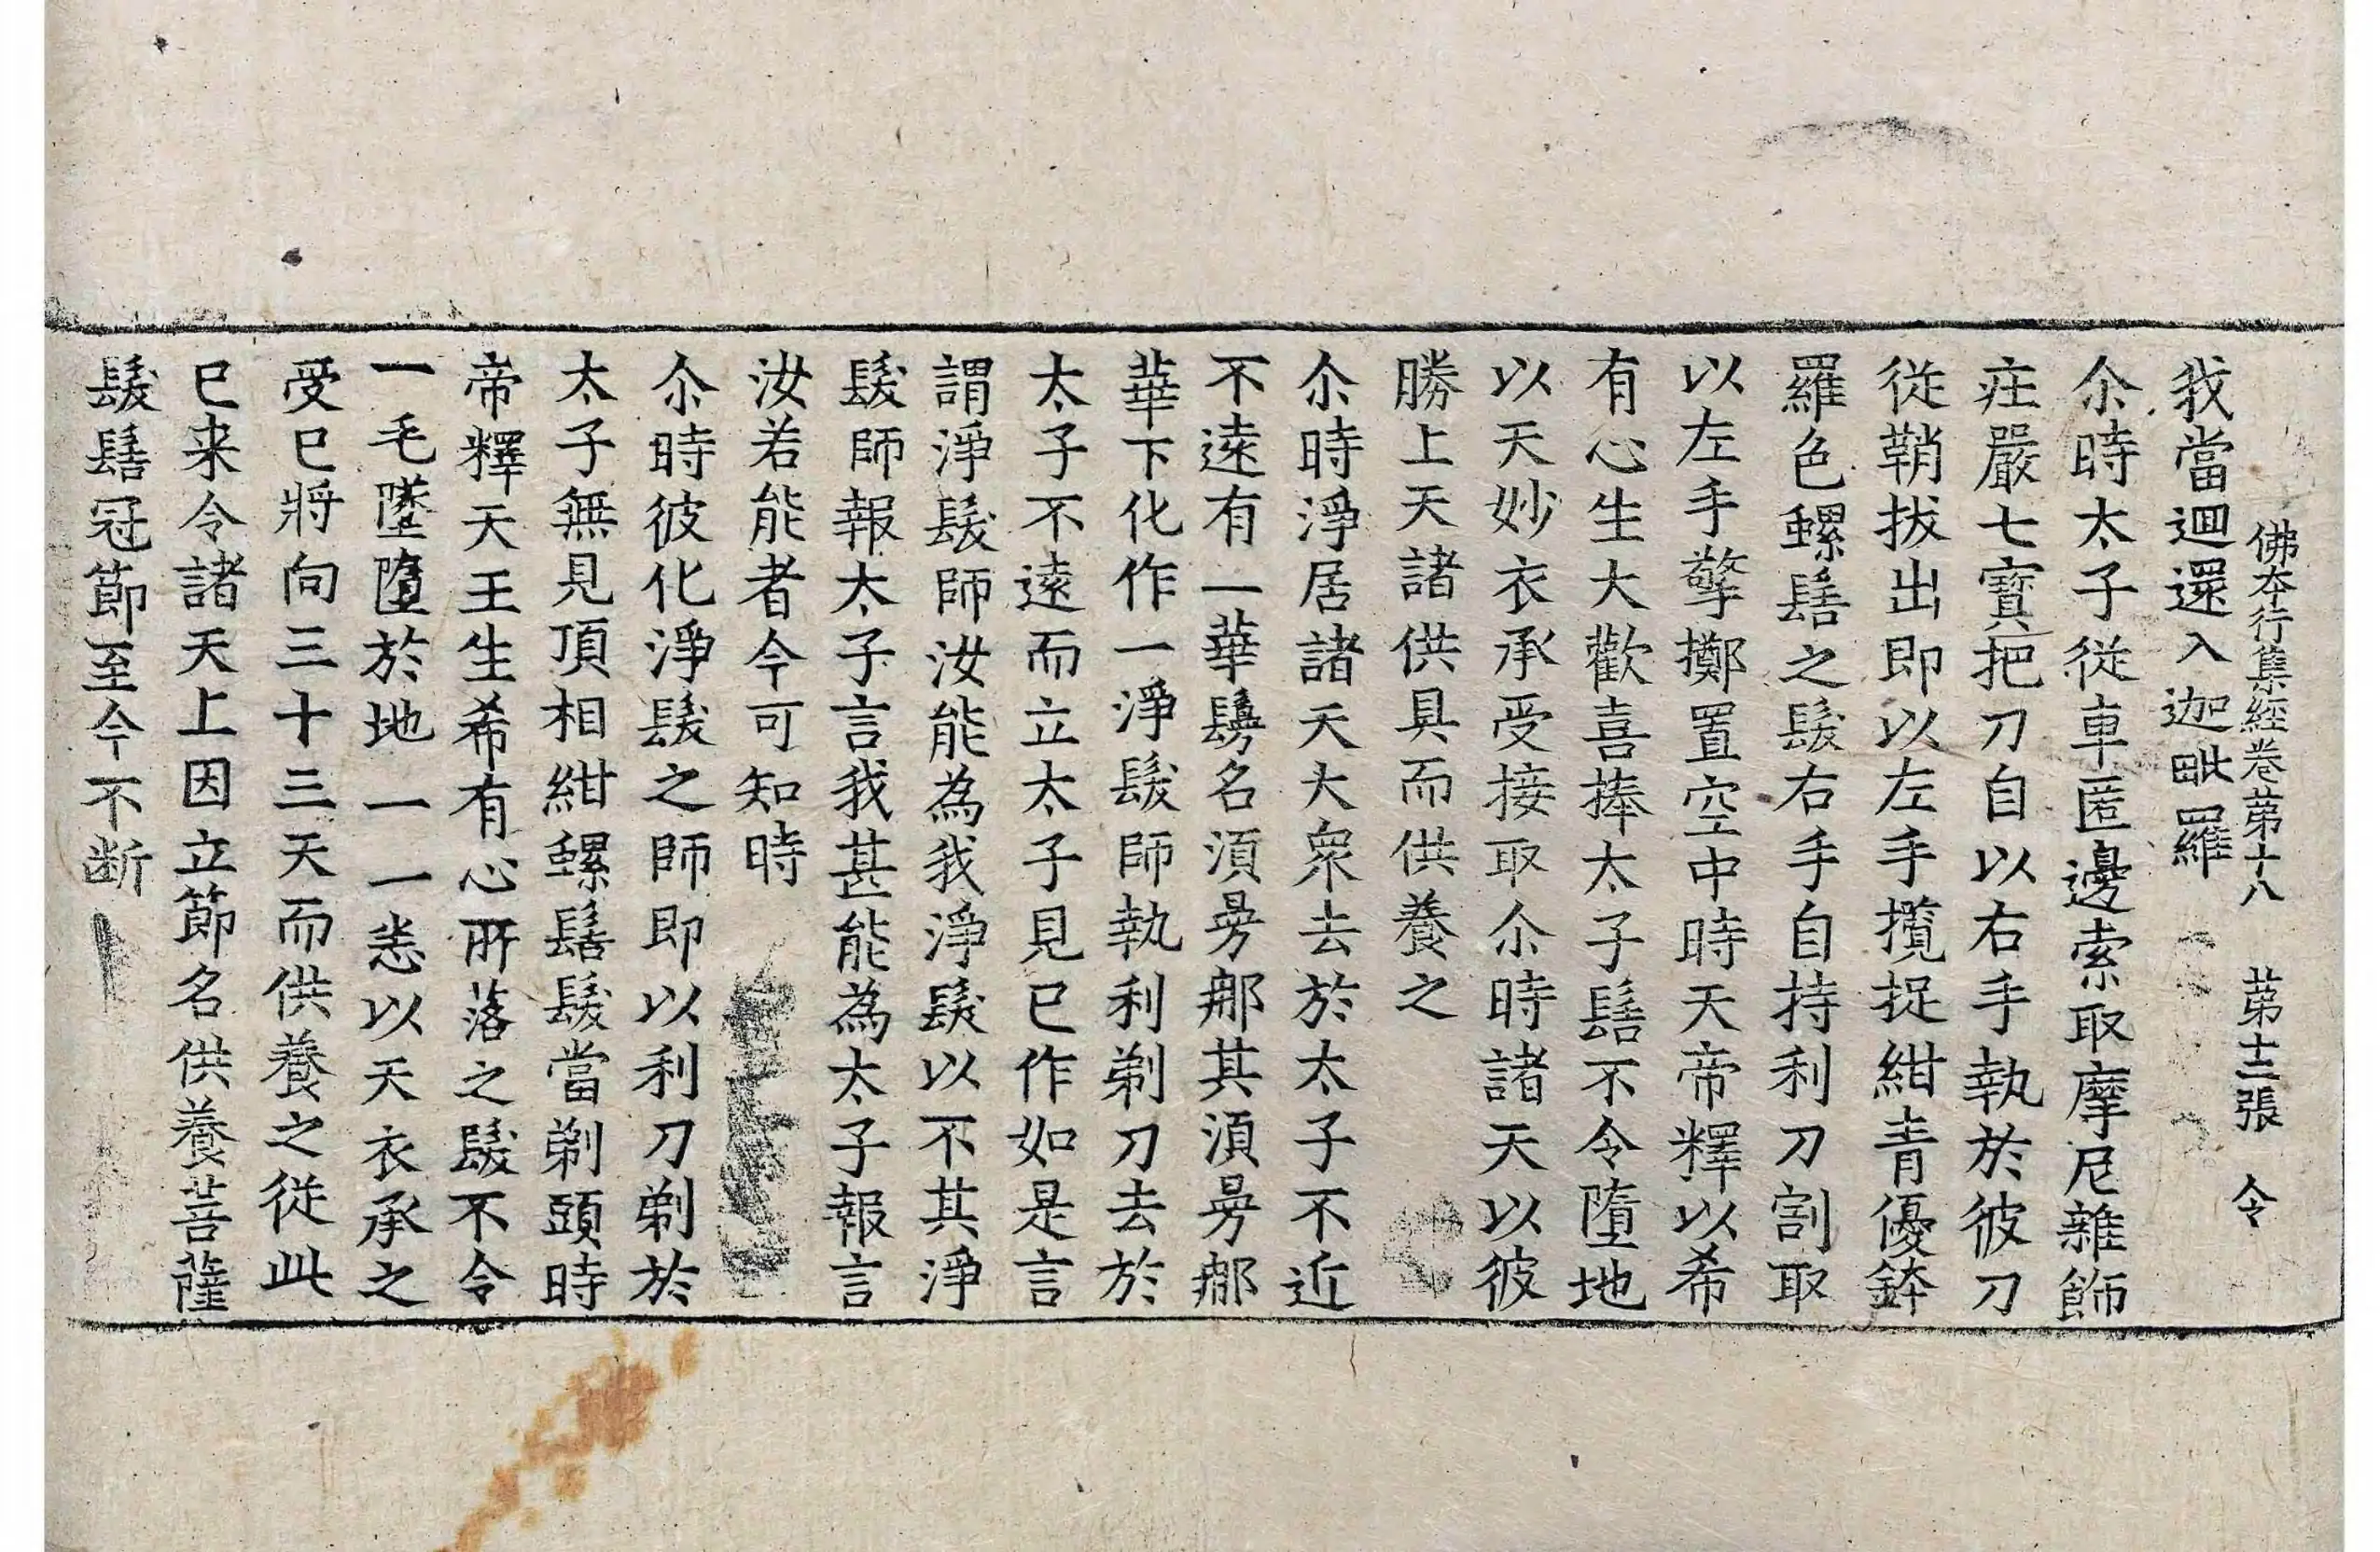 佛本行集經卷第十八　第十三張　令
我當迴還入迦毗羅
尒時太子從車匿邊索取摩尼雜飾
莊嚴七寶把刀自以右手執於彼刀
從鞘拔出即以左手攬捉紺青優鉢
羅色螺髻之髮右手自持利刀割取
以左手擎擲置空中時天帝釋以希
有心生大歡喜捧太子髻不令墮地
以天妙衣承受接取尒時諸天以彼
勝上天諸供具而供養之
尒時淨居諸天大衆去於太子不近
不遠有一華鬘名須曼那其須曼那
華下化作一淨髮師執利剃刀去於
太子不遠而立太子見已作如是言
謂淨髮師汝能為我淨髮以不其淨
髮師報太子言我甚能為太子報言
汝若能者今可知時
尒時彼化淨髮之師即以利刀剃於
太子無見頂相紺螺髻髮當剃頭時
帝釋天王生希有心所落之髮不令
一毛墜墮於地一一悉以天衣承之
受已將向三十三天而供養之從此
已来令諸天上因立節名供養菩薩
髮髻冠節至今不断